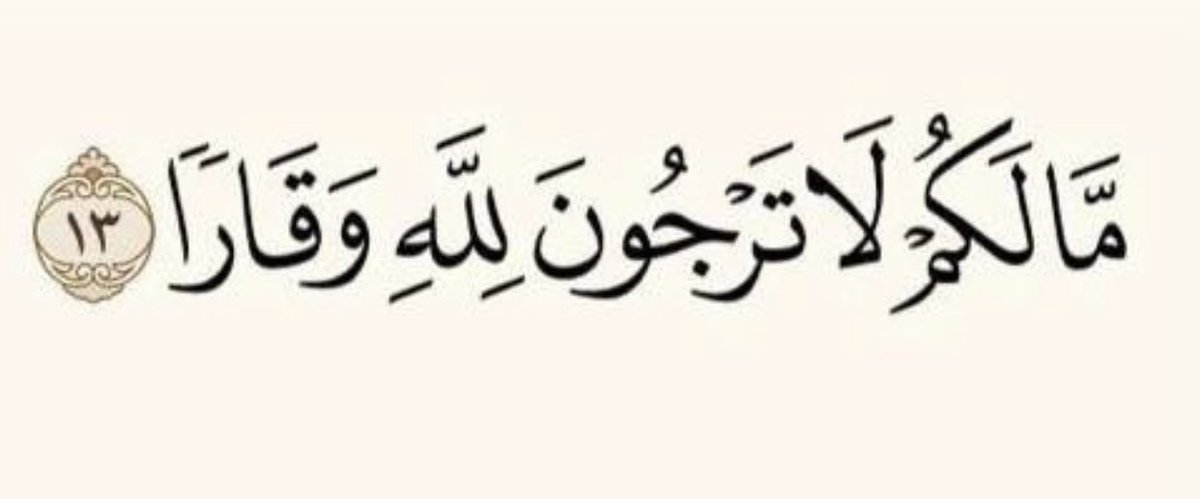 مَّا لَكُمْ لَا تَرْجُونَ لِلَّهِ وَقَارًا ١٣